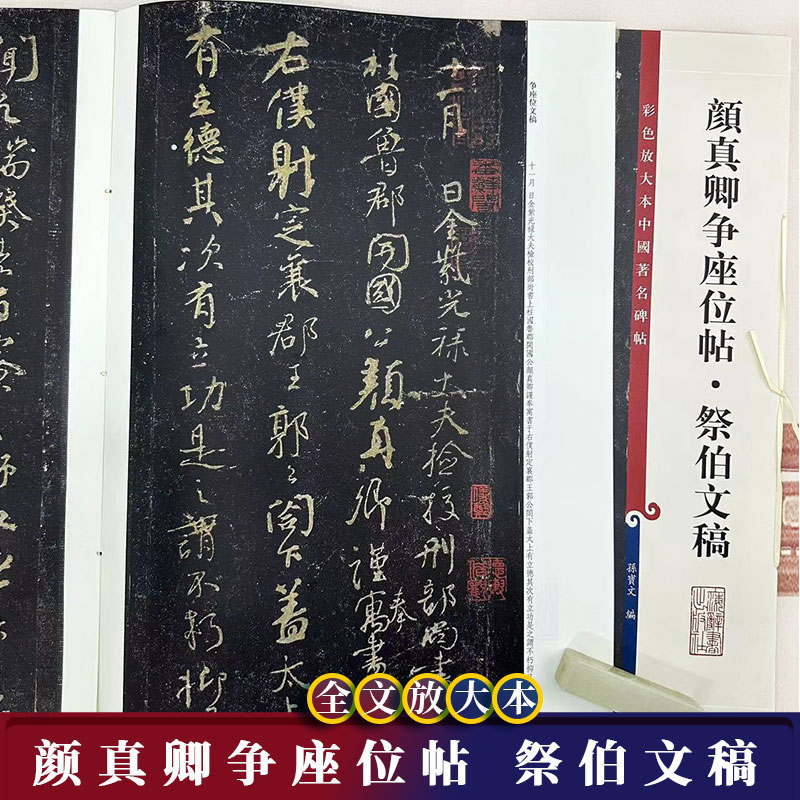 顔真卿争座位帖·祭伯文稿
彩色放大本中國著名碑帖
孫寶文 編
争座位文稿
十一月 日金紫光禄大夫檢校刑部尚書上柱國魯郡開國公顔真卿謹奉寓書于右僕射定襄郡王郭公閤下蓋太上有立德其次有立功是之謂不朽抑
十一月 日金紫光祿大夫檢校刑部尚書
柱國魯郡開國公顏真卿謹奉寓書
右僕射定襄郡王郭公閤下蓋太上
有立德其次有立功是之謂不朽抑
聞之端揆者百寮之師
全文放大本
颜真卿争座位帖 祭伯文稿